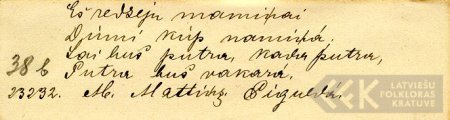 Es redzeju mamiņai
Dūmi kūp namiņā.
Lai bus putra, kada putra,
Putra bus vakarā.
38 b
23232. M. Mattīsz Siguldā.
LATVIEŠU
FOLKLORAS
KRATUVE